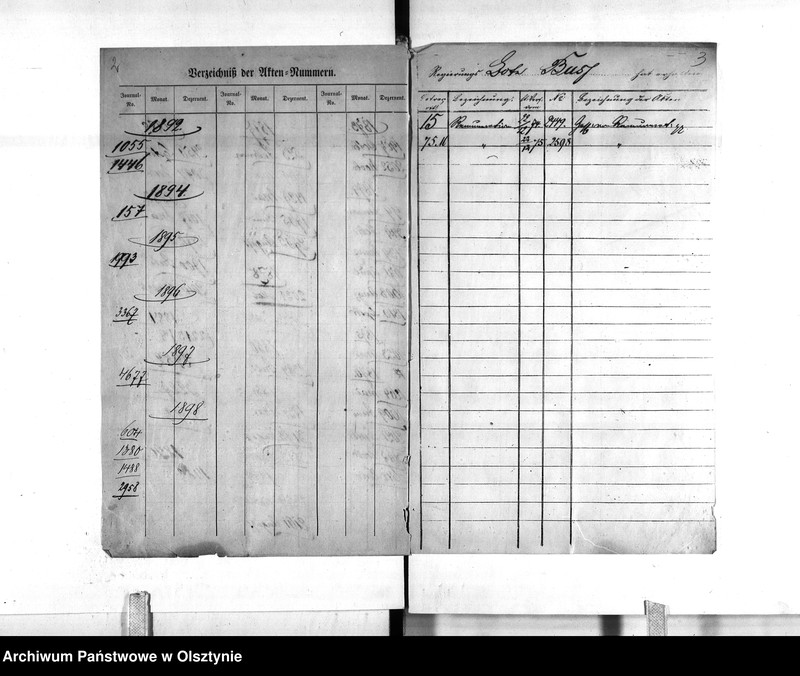 2
Verzeichniß der Akten-Nummern.
Journal-No. Monat. Dezernent. Journal-No. Monat. Dezernent. Journal-No. Monat. Dezernent.
1892
1055
1446
1894
157
1895
1793
1896
3367
1897
4677
1898
604
1380
1488
2958
3
Regierungs Bote Busch hat erhalten
Bezeichnung No Bezeichnung der Akten
15 Remuneration
75. 2898 "
Archiwum Państwowe w Olsztynie